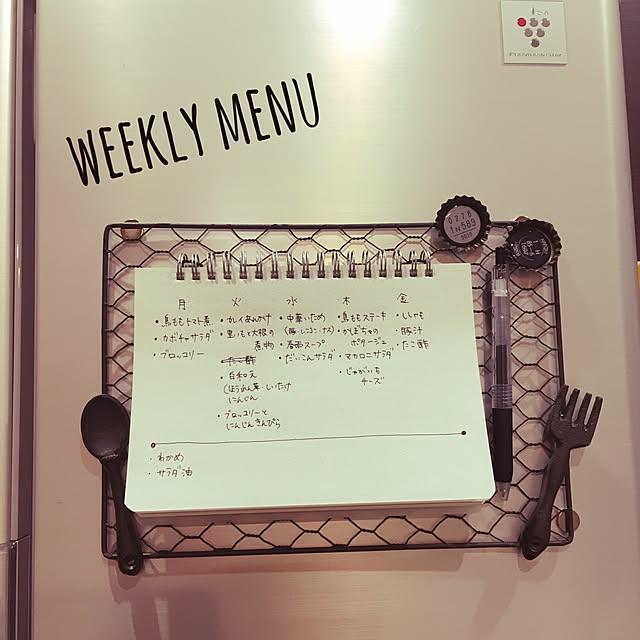 WEEKLY MENU
0278
1N589
月
・鳥ももトマト煮
・カボチャサラダ
・ブロッコリー
火
・カレイあんかけ
・里いもと大根の
煮物
・たこ酢
・白和え
(ほうれん草・しいたけ
にんじん
・ブロッコリーと
にんじんきんぴら
水
・中華いため
(豚・レンコン・ナス)
・春雨スープ
・だいこんサラダ
木
・鳥ももステーキ
・かぼちゃの
ポタージュ
・マカロニサラダ
・じゃがいも
チーズ
金
・ししゃも
・豚汁
・たこ酢
・わかめ
・サラダ油